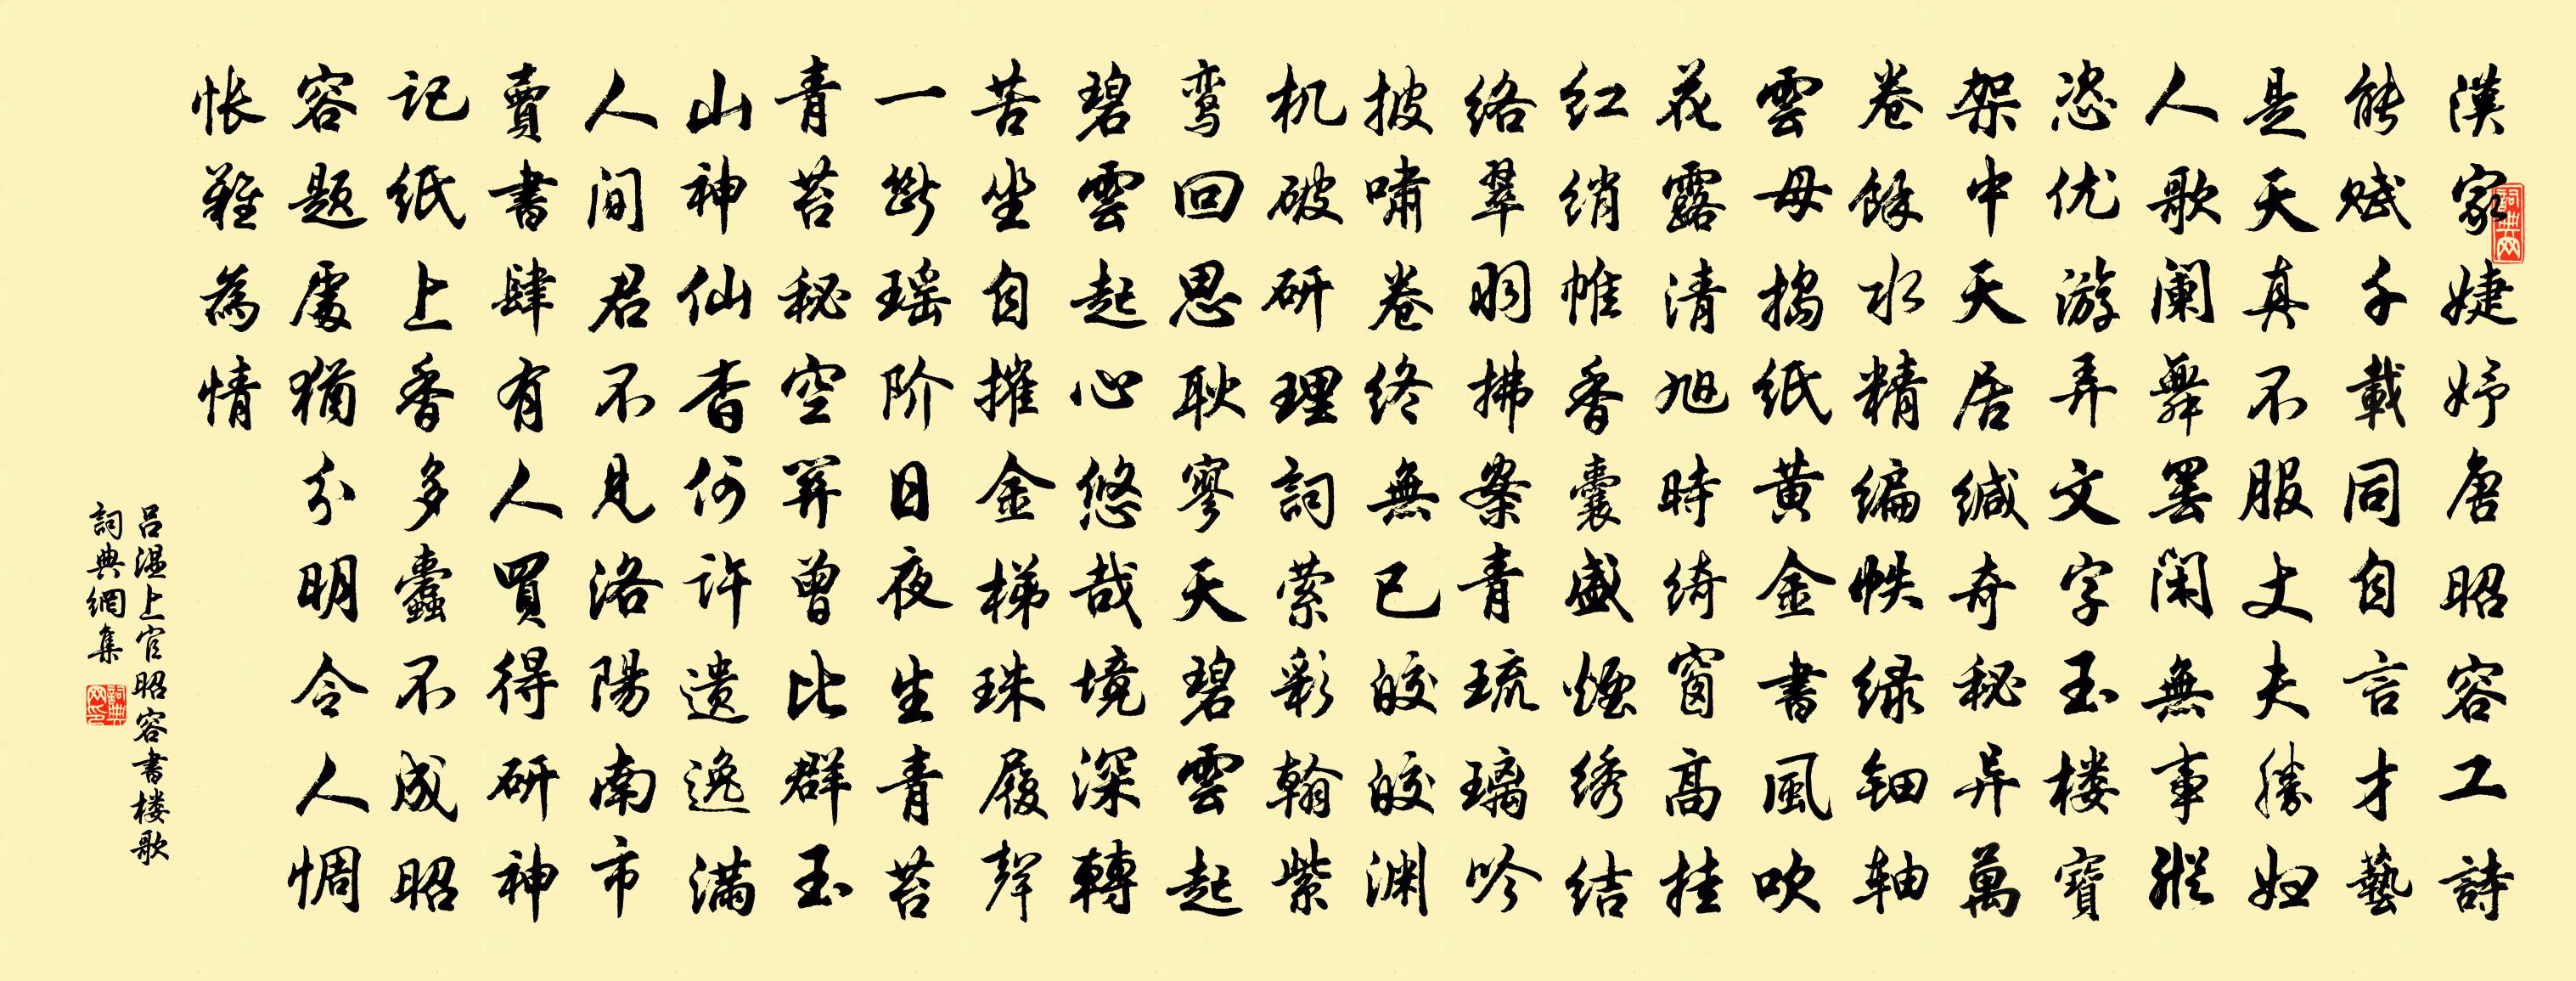 漢家婕妤唐昭容工詩
能赋千載同自言才藝
是天真不服丈夫勝妇
人歌阑舞罢闲無事縱
恣优游弄文字玉楼寶
架中天居缄奇秘异萬
卷餘水精编帙绿钿轴
雲母捣纸黄金書風吹
花露清旭時绮窗高挂
红绡帷香囊盛煙绣结
络翠羽拂案青琉璃吟
披啸卷终無已皎皎渊
机破研理詞萦彩翰紫
鸾回思耿寥天碧雲起
碧雲起心悠哉境深轉
苦坐自摧金梯珠履聲
一断瑶阶日夜生青苔
青苔秘空関曾比群玉
山神仙杳何許遗逸满
人间君不見洛陽南市
賣書肆有人買得研神
记纸上香多蠹不成昭
容题處猶分明令人惆
怅難為情
吕温上官昭容書楼歌
詞典網集
詞典网
詞典网印